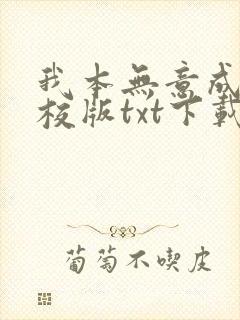 我本無意成
校版txt下載
葡萄不喫皮